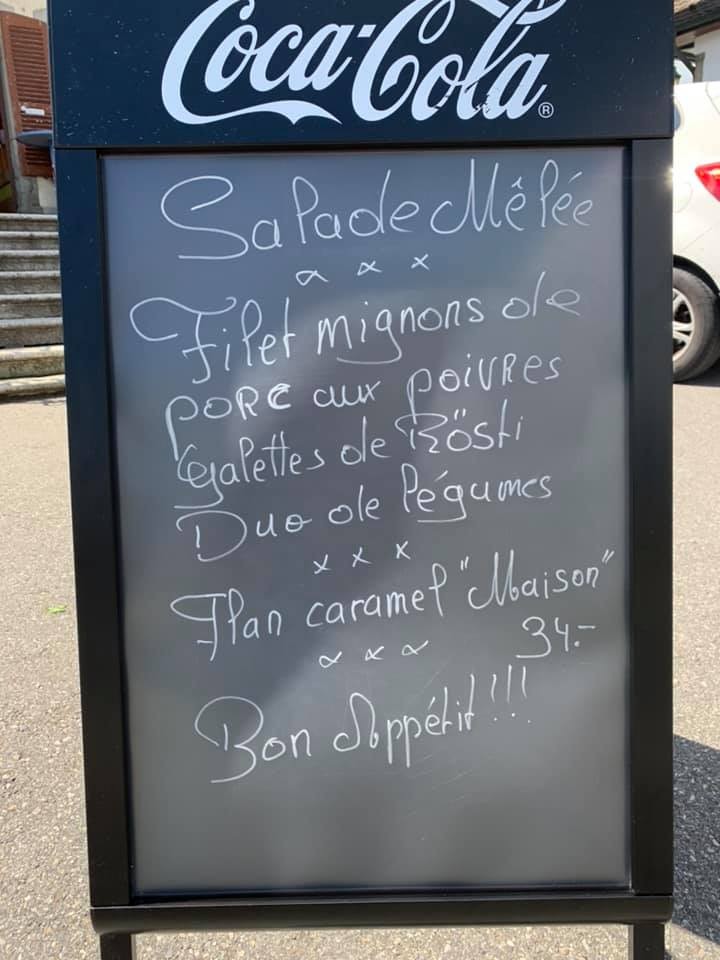 Coca-Cola®
Salade Mêlée
x x x
Filet mignons de
porc aux poivres
Galettes de Rösti
Duo de légumes
x x x
Flan caramel "Maison"
34.-
x x x
Bon Appétit!!!